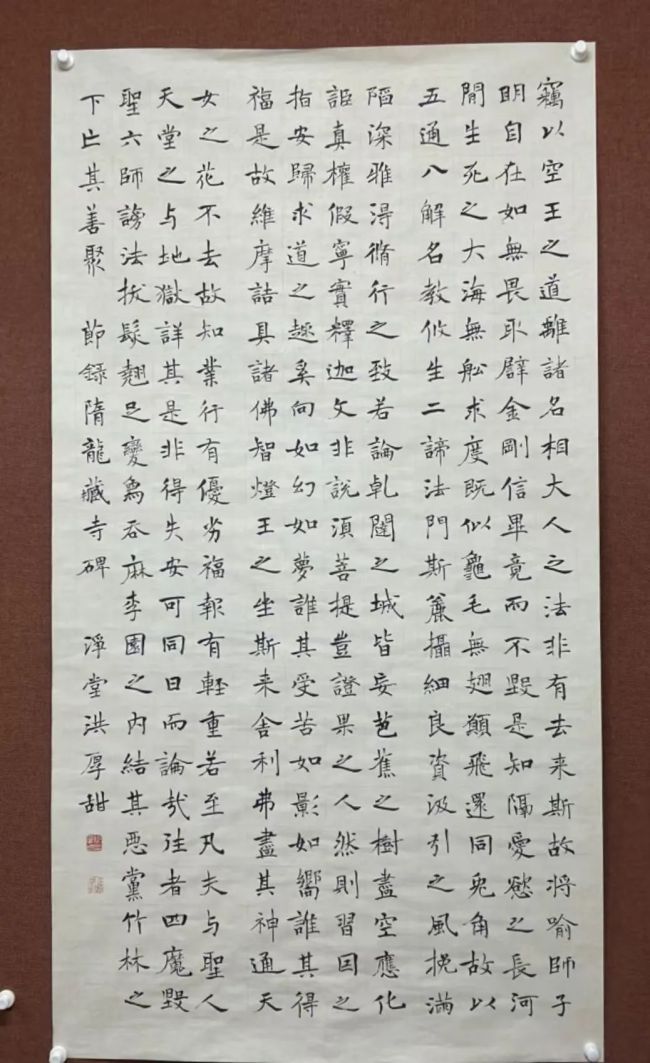 竊以空王之道離諸名相大人之法非有去来斯故将喻師子
明自在如無畏取辟金剛信畢竟而不毀是知隔愛慾之長河
閒生死之大海無舩求度既似龜毛無翅願飛還同兎角故以
五通八解名教攸生二諦法門斯簏攝細良資汲引之風挽滿
陷深雅淂脩行之致若論乹闥之城皆妄芭蕉之樹盡空應化
詎真權假寧實釋迦文非說湏菩提豈證果之人然則習因之
指安歸求道之趣奚向如幻如夢誰其受苦如影如嚮誰其得
福是故維摩詰具諸佛智燈王之坐斯来舍利弗盡其神通天
女之花不去故知業行有優劣福報有軽重若至凡夫与聖人
天堂之与地獄詳其是非得失安可同日而論㢤注者四魔毀
聖六師謗法拔髮翹足變鳥吞麻李園之内結其惡黨竹林之
下亡其善聚 節録隋龍藏寺碑 淨堂洪厚甜